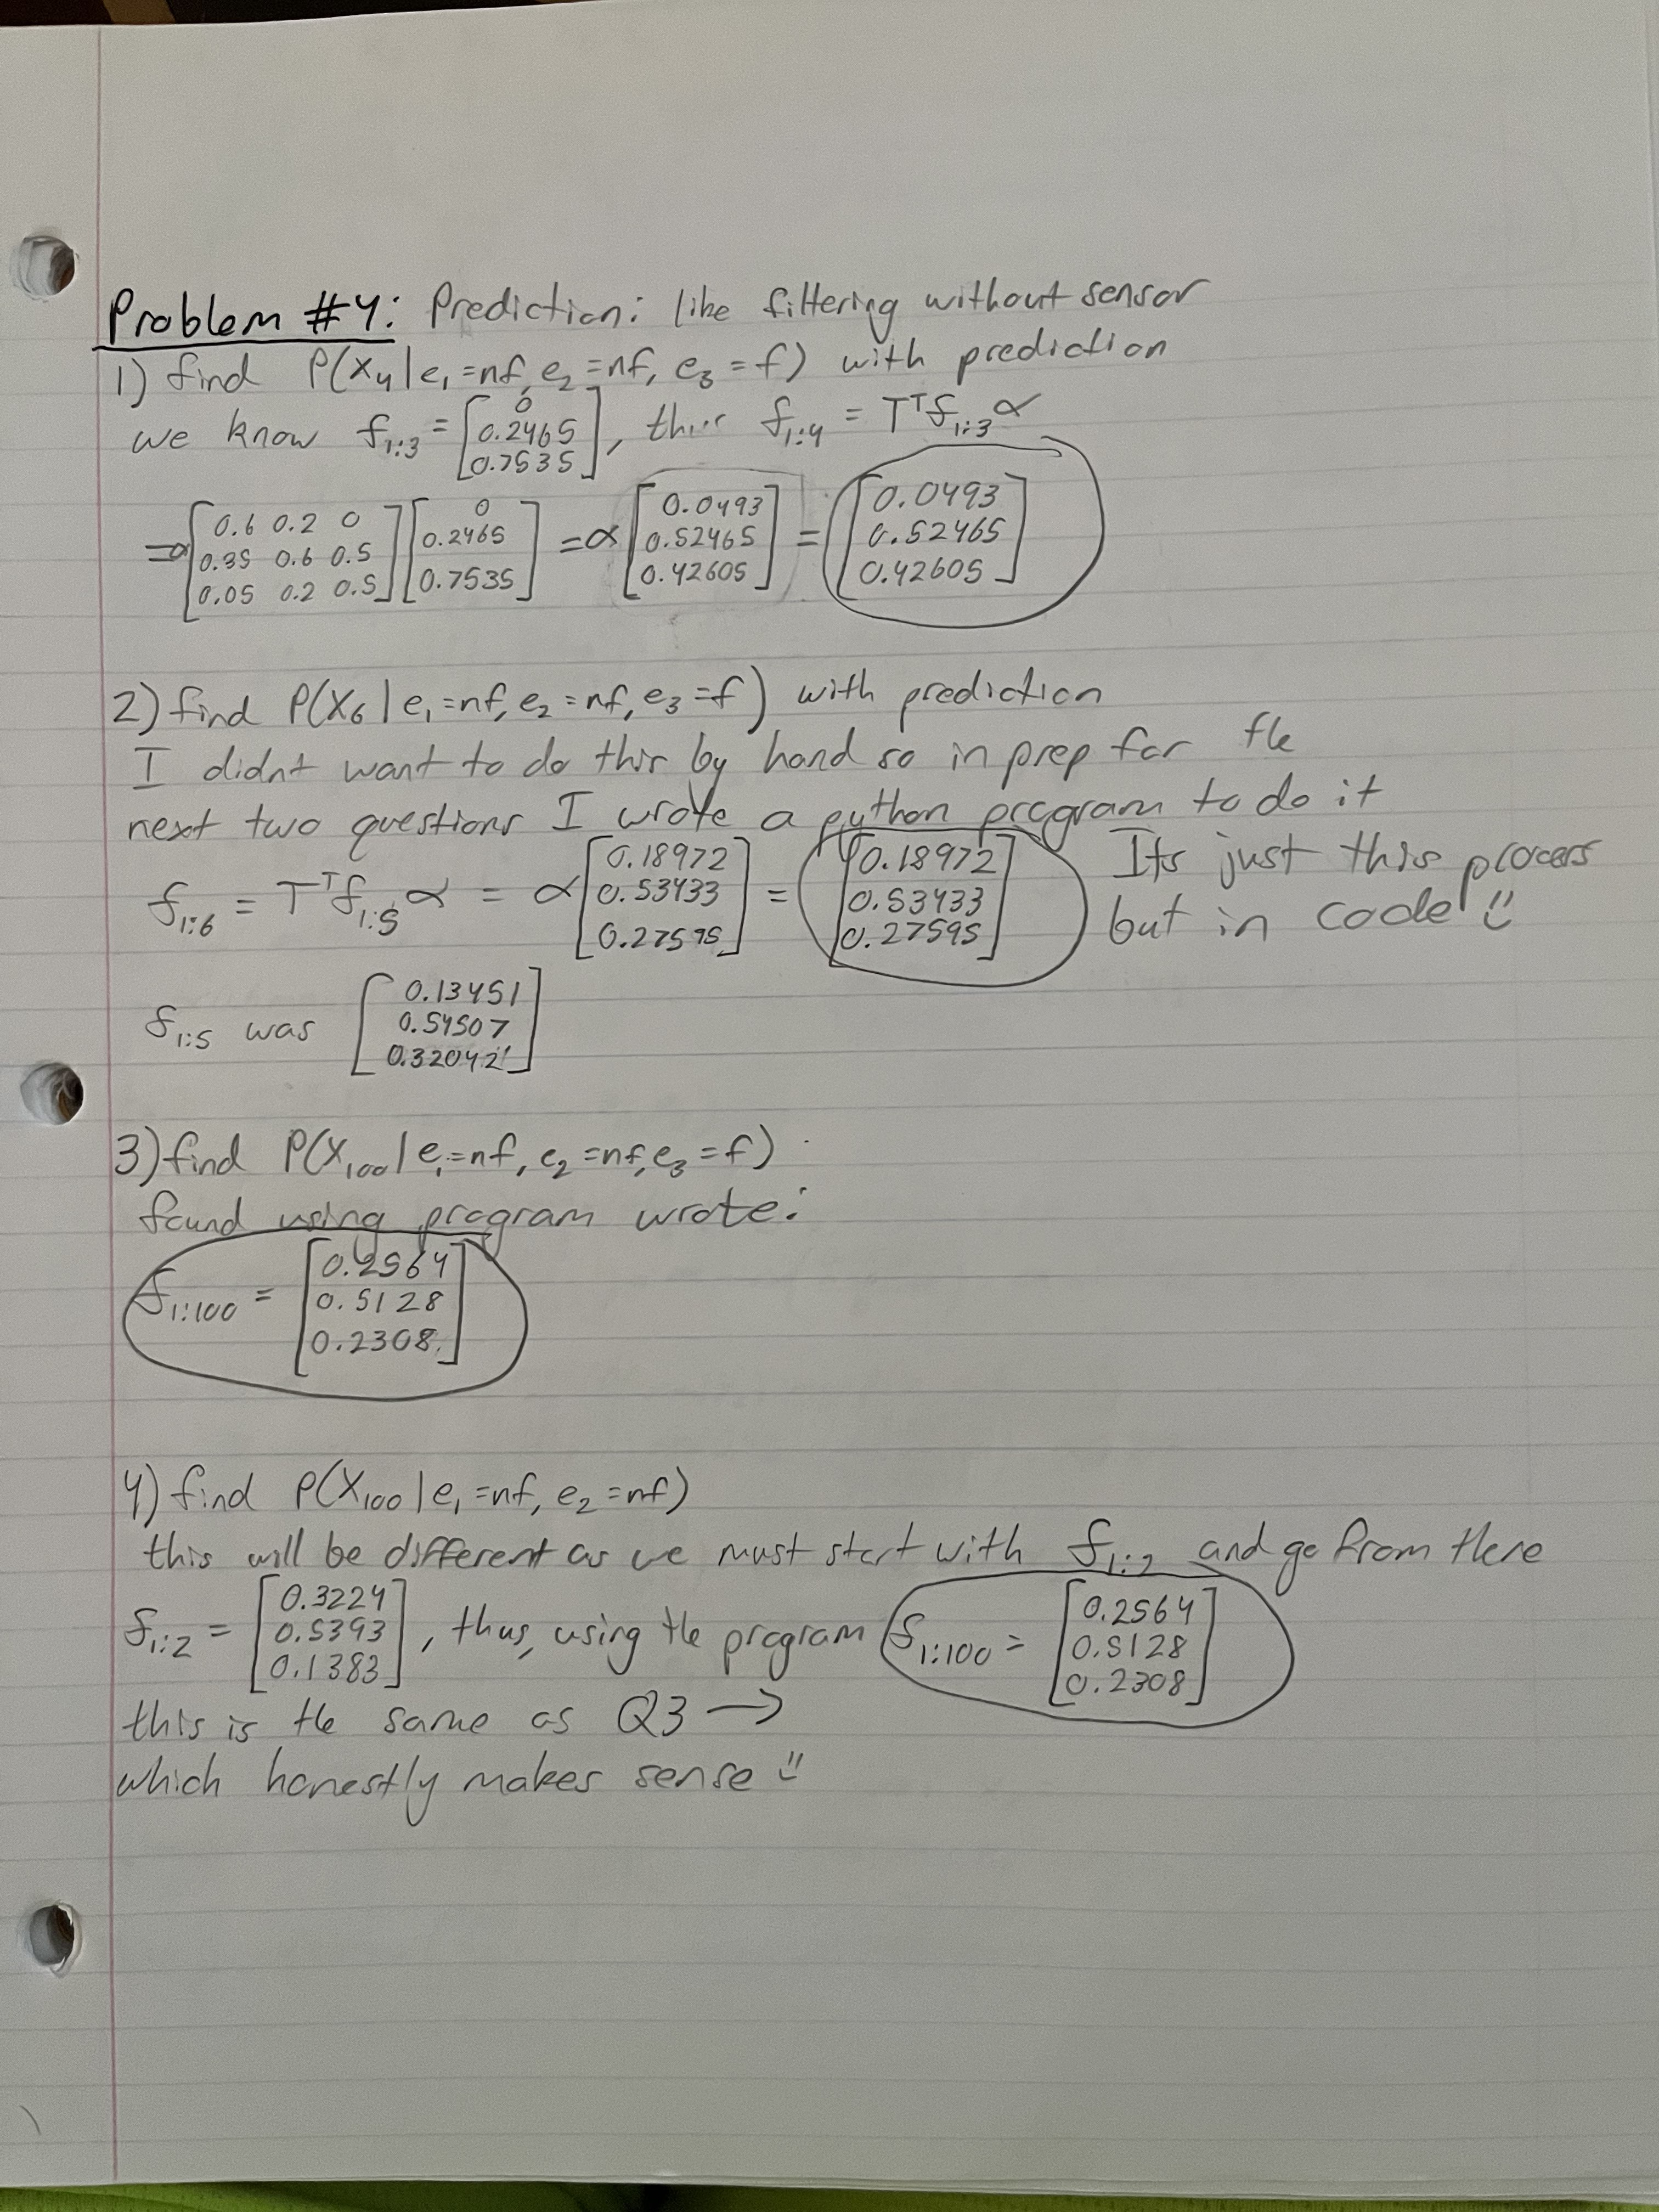 Problem #4: Prediction: like filtering without sensor
1) find P(X₄|e₁=nf, e₂=nf, e₃=f) with prediction
we know f₁:₃ = [0 0.2465 0.7535], thus f₁:₄ = Tᵀf₁:₃α
=α[0.6 0.2 0 0.35 0.6 0.5 0.05 0.2 0.5][0 0.2465 0.7535] = α[0.0493 0.52465 0.42605] = [0.0493 0.52465 0.42605]
2) find P(X₆|e₁=nf, e₂=nf, e₃=f) with prediction
I didnt want to do this by hand so in prep for the
next two questions I wrote a python program to do it
f₁:₆ = Tᵀf₁:₅α = α[0.18972 0.53433 0.27595] = [0.18972 0.53433 0.27595] Its just this process
but in code
f₁:₅ was [0.13451 0.54507 0.32042]
3) find P(X₁₀₀|e₁=nf, e₂=nf, e₃=f)
found using program wrote:
f₁:₁₀₀ = [0.2564 0.5128 0.2308]
4) find P(X₁₀₀|e₁=nf, e₂=nf)
this will be different as we must start with f₁:₂ and go from there
f₁:₂ = [0.3224 0.5393 0.1383], thus, using the program f₁:₁₀₀ = [0.2564 0.5128 0.2308]
this is the same as Q3 →
which honestly makes sense